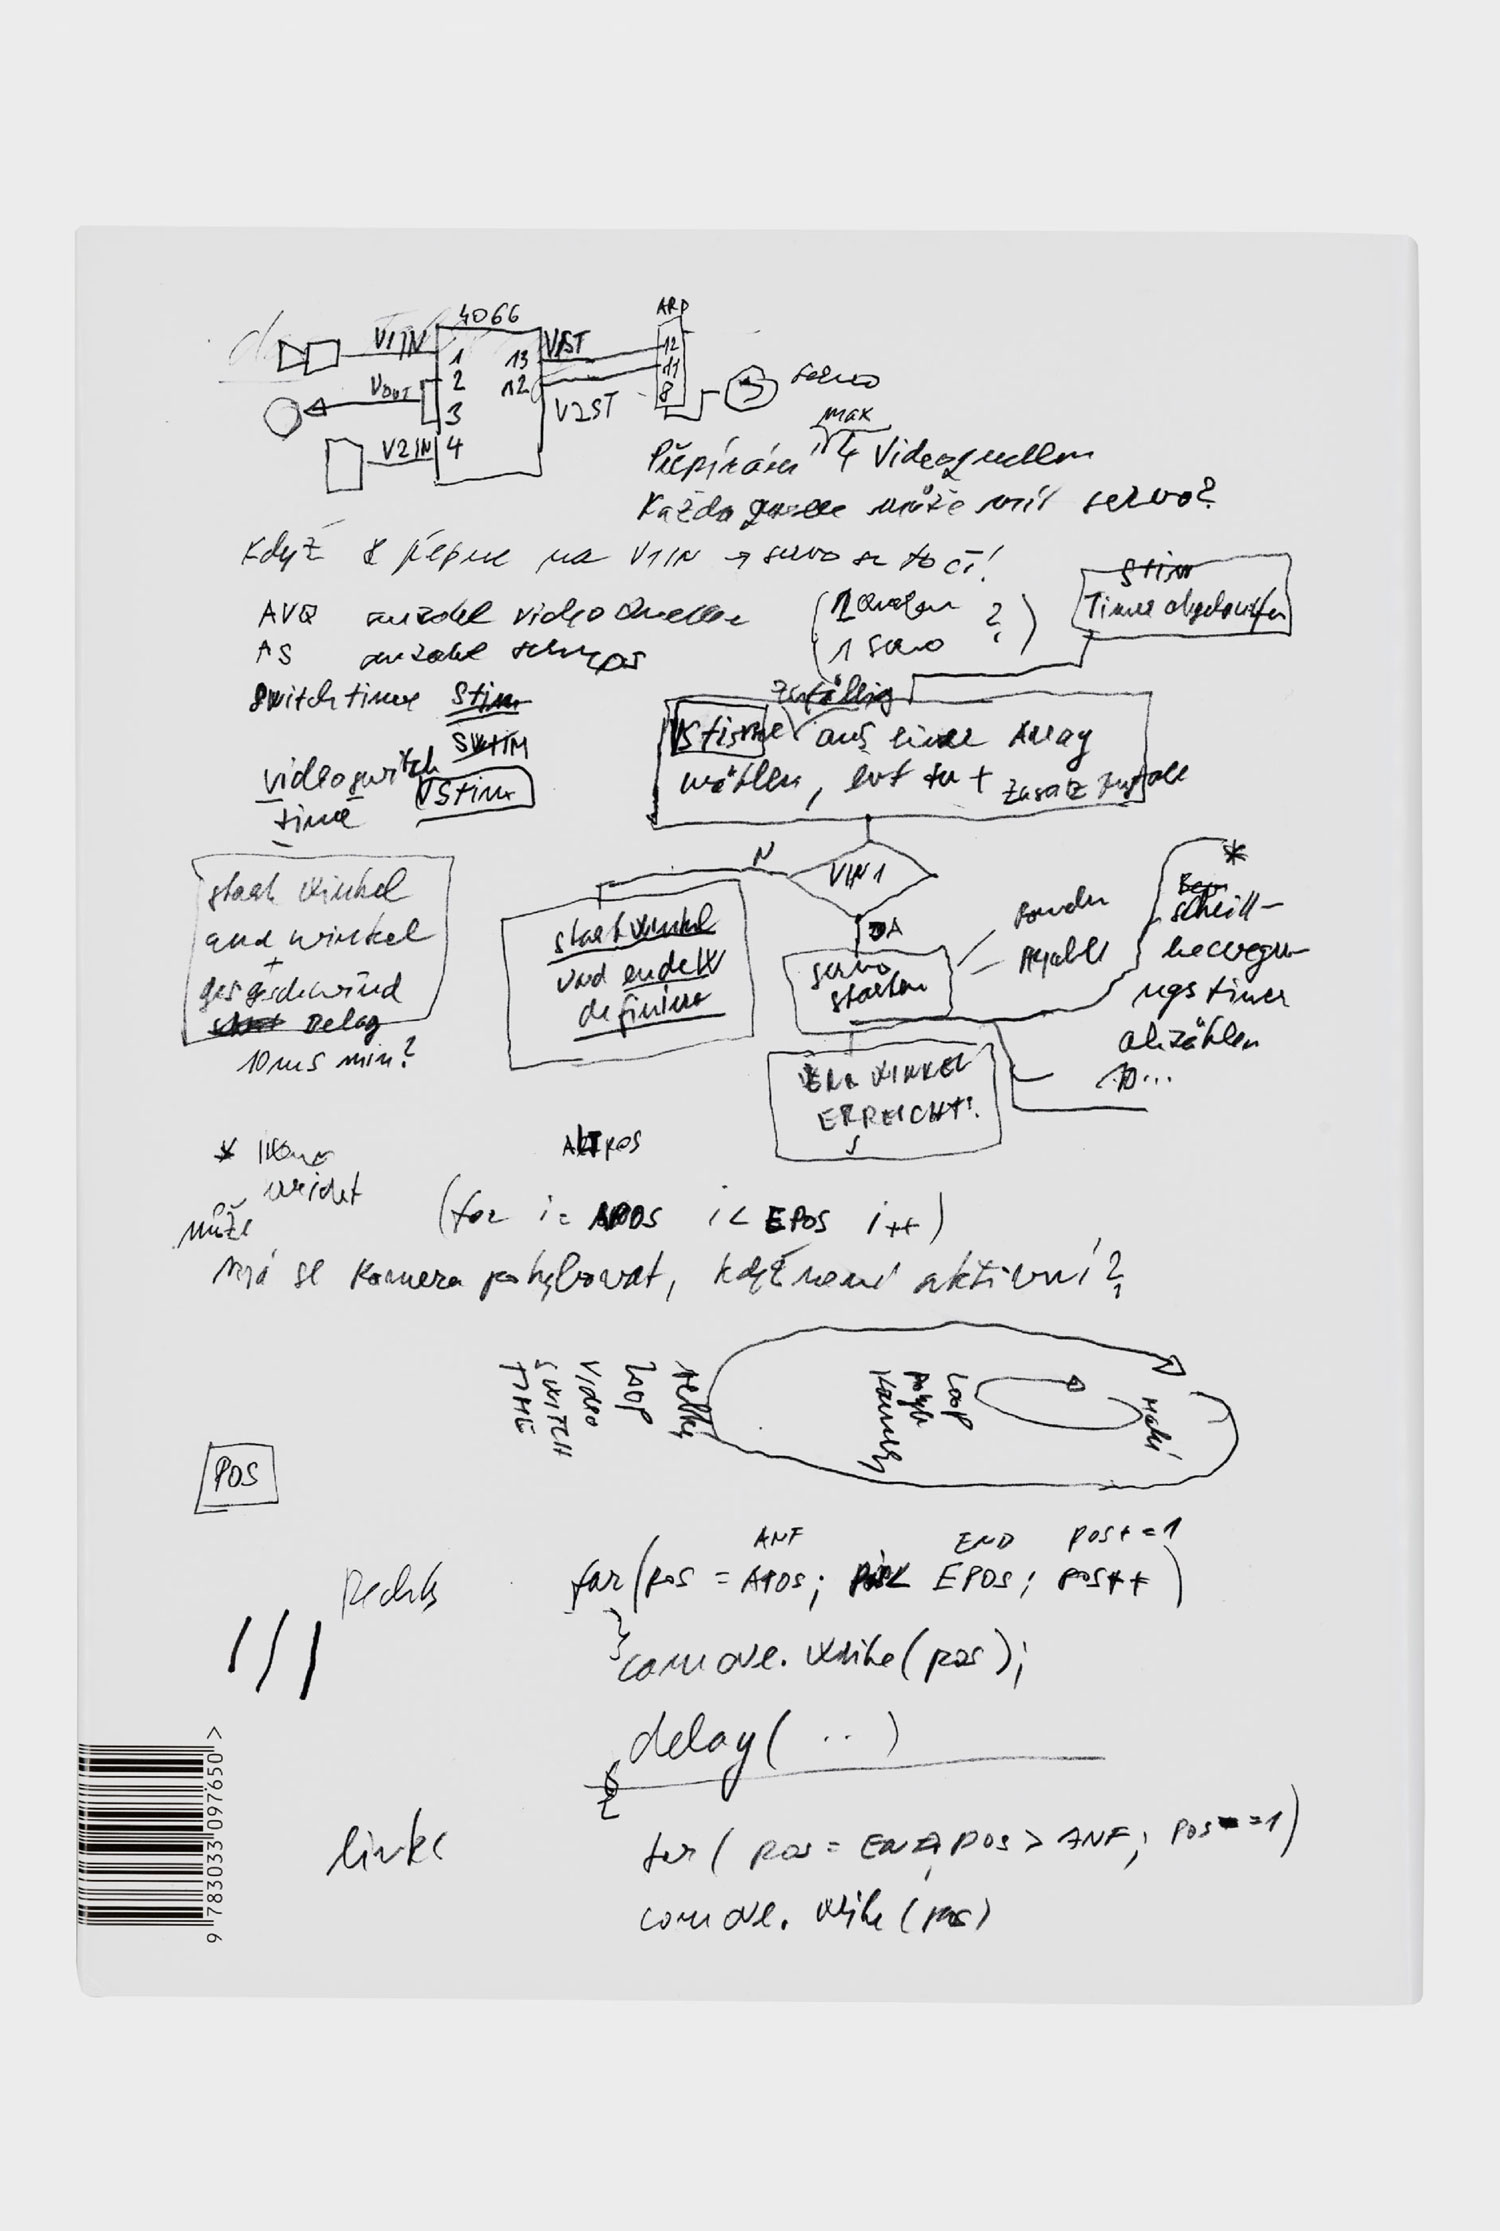 4066
ARD
V1IN
1
13
V1ST
12
VOUT
2
12
11
3
V2ST
8
servo
V2IN
4
max
Přepínání 4 Videoquellen
Každá quelle může mít servo?
Když přepne na V1IN → servo se točí!
Stim
Timer abgelaufen
AVQ anzahl videoquellen
(2 Quellen
1 servo ?)
AS anzahl
switchtime Stim
SWTIM
videoswitch
time
VStim
zufällig
VStime aus einer Array
wählen, evt tu + zusatz
N
VIN1
JA
start winkel
end winkel
+
geschwind
Delay
10ms min?
start winkel
und endeW
definieren
servo
starten
*
schritt-
bewegu-
ngstimer
abzählen
10...
WINKEL
ERREICHT!
*
ALTPOS
může
(for i= APOS i< EPOS i++)
má se kamera pohybovat, když není aktivní?
velký
LOOP
VIDEO
SWITCH
TIME
malý
LOOP
pohyb
kamery
POS
ANF END pos+=1
Rechts for(pos = APOS; pos< EPOS; pos++)
.write(pos);
delay( .. )
links for( pos = END, pos > ANF; pos-=1)
.write(pos)
9 783033 097650 >